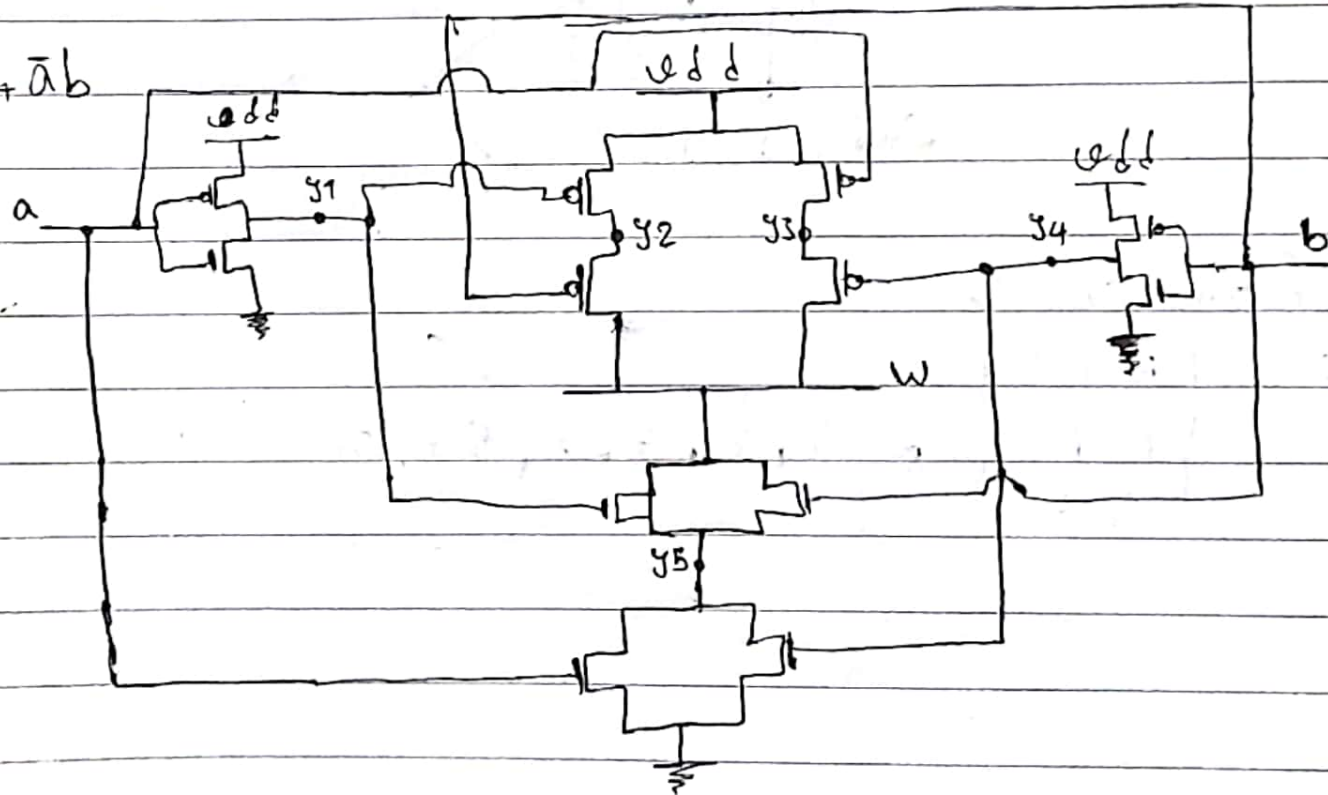 + āb
vdd
vdd
vdd
y1
a
y2
y3
y4
b
w
y5